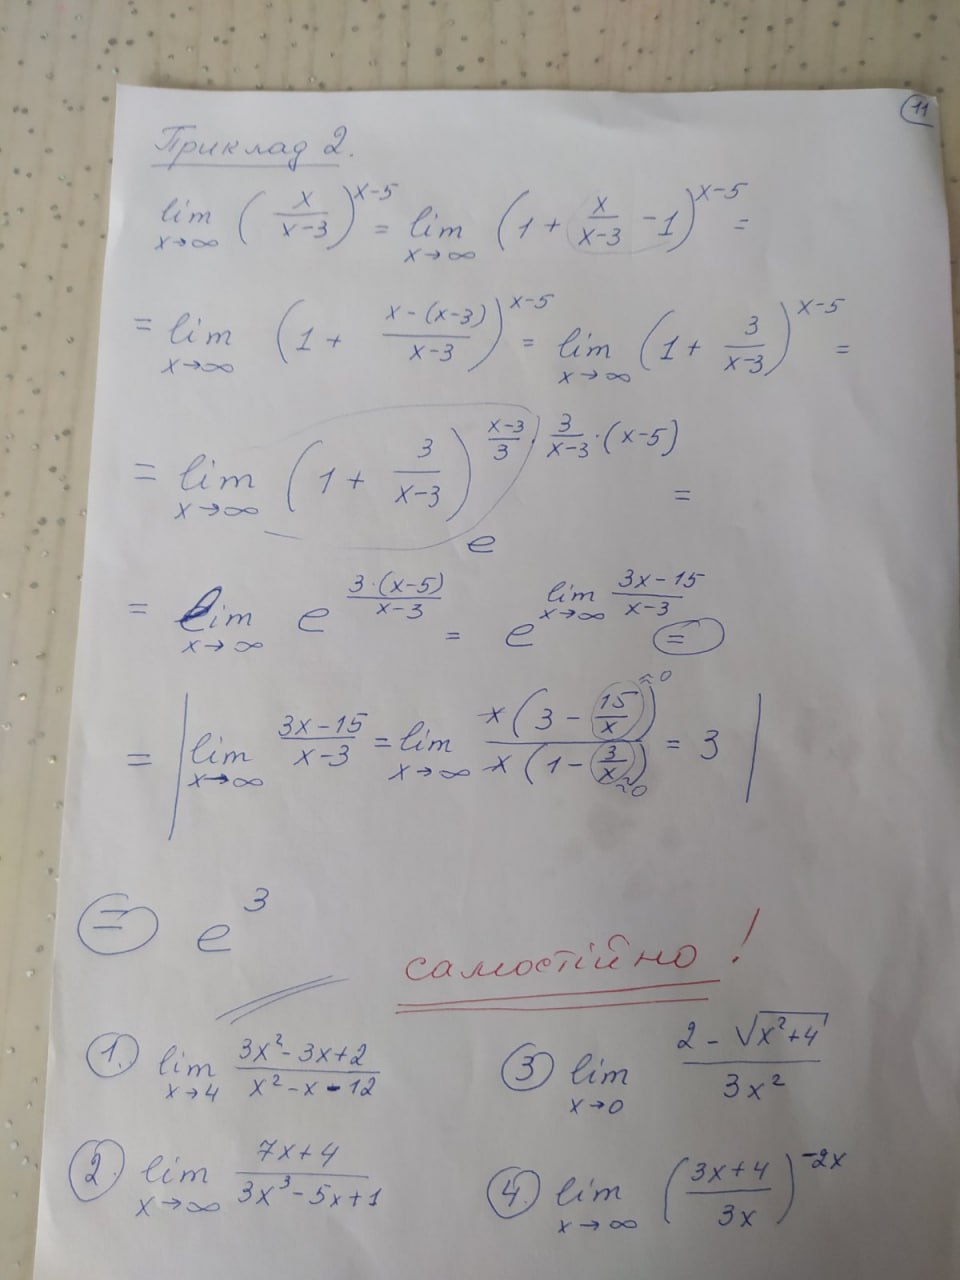 11
Приклад 2.
lim x→∞ (x/(x-3))^(x-5) = lim x→∞ (1 + x/(x-3) - 1)^(x-5) =
= lim x→∞ (1 + (x-(x-3))/(x-3))^(x-5) = lim x→∞ (1 + 3/(x-3))^(x-5) =
= lim x→∞ (1 + 3/(x-3))^((x-3)/3 · 3/(x-3) · (x-5)) =
e
= lim x→∞ e^(3·(x-5)/(x-3)) = e^(lim x→∞ (3x-15)/(x-3)) =
= | lim x→∞ (3x-15)/(x-3) = lim x→∞ x(3 - 15/x)^≈0 / x(1 - 3/x)_≈0 = 3 |
= e^3
самостійно!
1. lim x→4 (3x²-3x+2)/(x²-x-12)
3 lim x→0 (2-√(x²+4))/(3x²)
2. lim x→∞ (7x+4)/(3x³-5x+1)
4. lim x→∞ ((3x+4)/(3x))^(-2x)